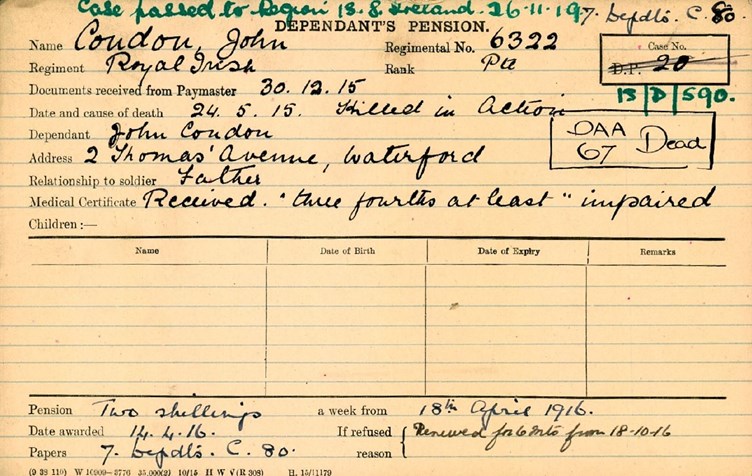 Case passed to Region 13. S Ireland. 26-11-19
7. Depdts. C. 80.
DEPENDANT'S PENSION.
Name Condon, John Regimental No. 6322
Case No.
D.P. 20
Regiment Royal Irish Rank Pte
13/D/590.
Documents received from Paymaster 30.12.15
Date and cause of death 24.5.15. Killed in Action
Dependant John Condon
DAA 67 Dead
Address 2 Thomas' Avenue, Waterford
Relationship to soldier Father
Medical Certificate Received. "three fourths at least" impaired
Children:—
Name Date of Birth Date of Expiry Remarks
Pension Two shillings a week from 18th April 1916.
Date awarded 14.4.16. If refused Renewed for 6 mts from 18-10-16
Papers 7. Depdts. C. 80. reason
(9 38 110) W 10909—3776 35,000(2) 10/15 H W V (R 308) H. 15/11179